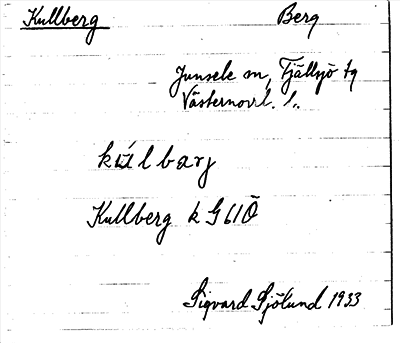 Kullberg Berg
Junsele sn, Fjällsjö tg
Västernorrl. l.
kúlbarj
Kullberg k G 61 Ö
Sigvard Sjölund 1933